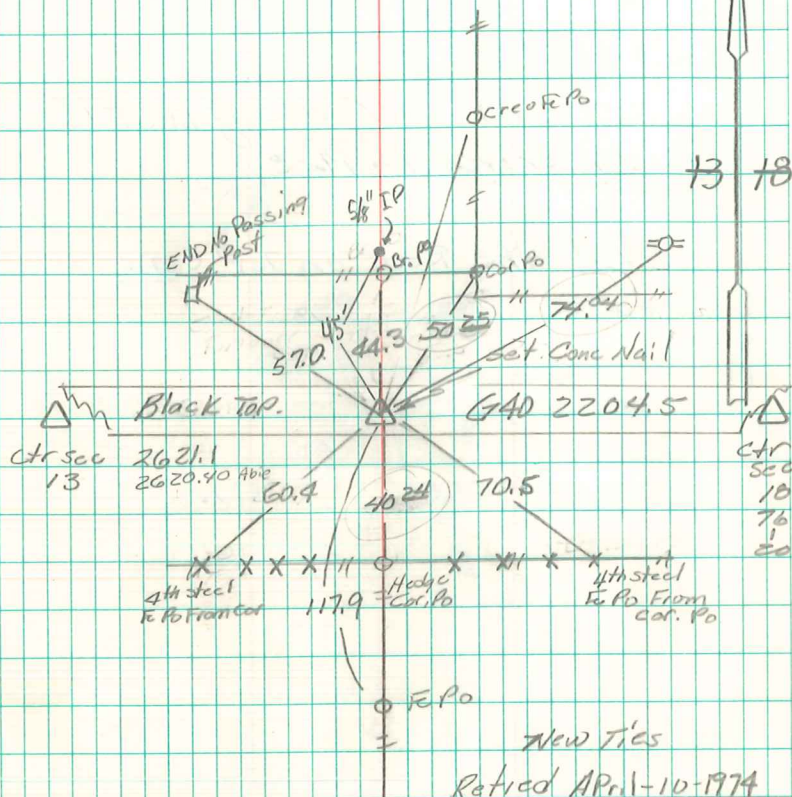 creo Fe Po
13 18
5/8" IP
END No Passing
Post
Br. Po
Cor Po
45'
57.0
44.3
50 25
74.04
Set. Conc Nail
Black Top.
G40 2204.5
Ctr sec
13
2621.1
2620.40 Able
Ctr
Sec
18
76
1
20
60.4
40 24
70.5
4th steel
Fe Po From Cor
117.9
Hedge
Cor. Po
4th steel
Fe Po From
Cor. Po
Fe Po
New Ties
Retied April-10-1974